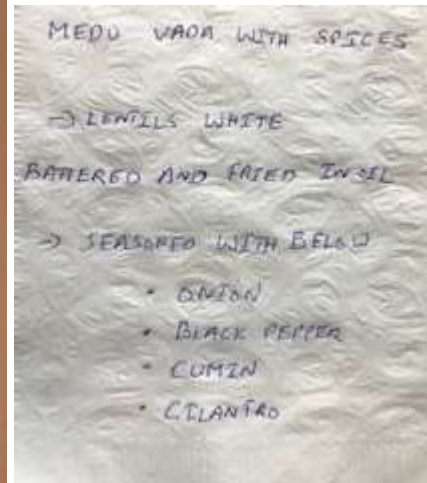 MEDU VADA WITH SPICES
→ LENTILS WHITE
BATTERED AND FRIED IN OIL
→ SEASONED WITH BELOW
• ONION
• BLACK PEPPER
• CUMIN
• CILANTRO